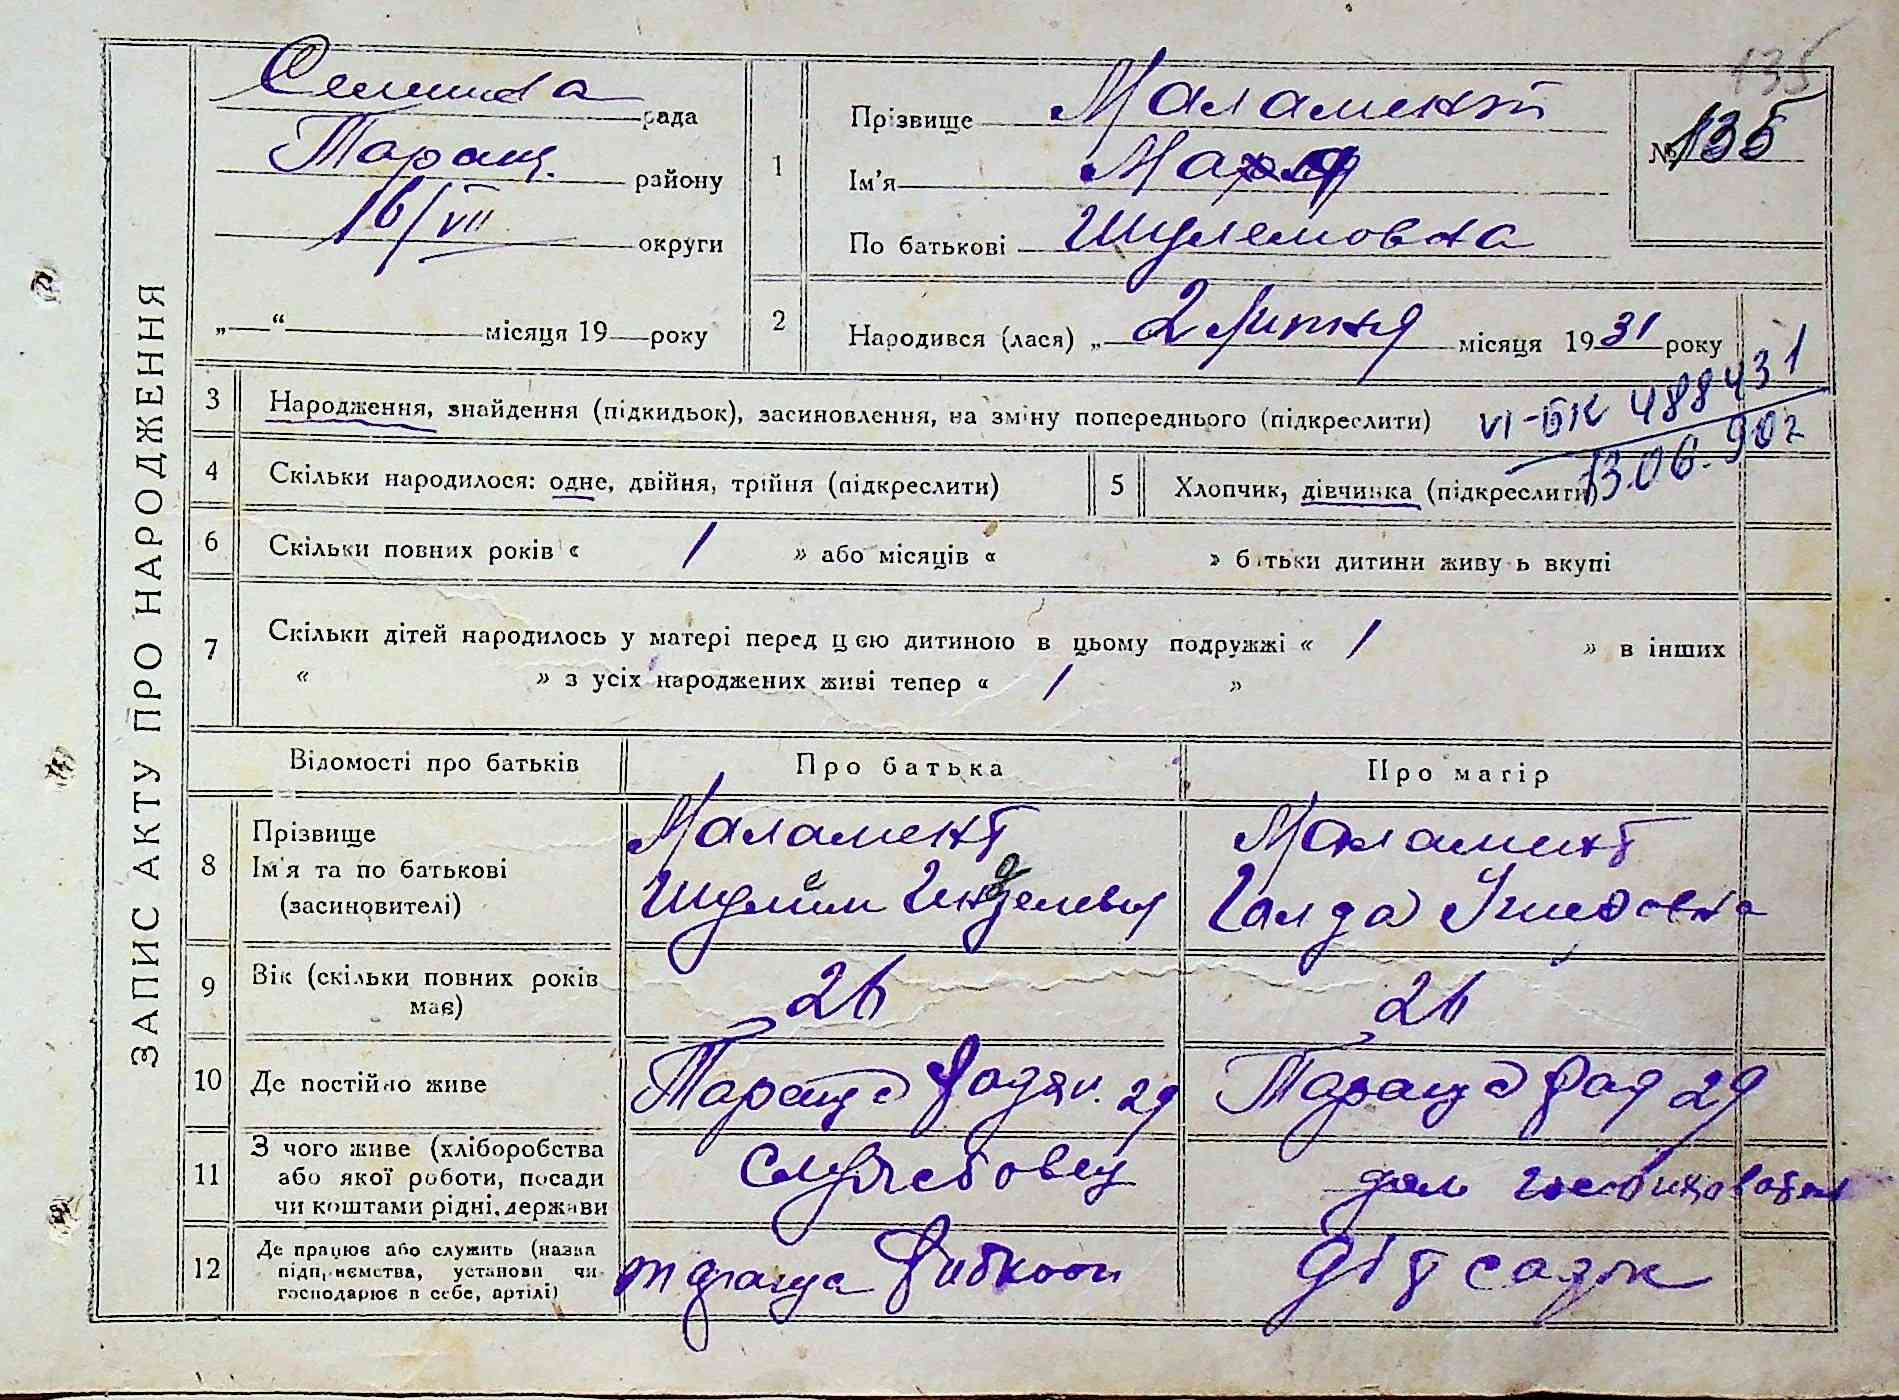 ЗАПИС АКТУ ПРО НАРОДЖЕННЯ
135
Селищна рада
Таращ. району
16/VII округи
„ “ місяця 19 року
1
Прізвище Маламент
Ім'я
По батькові Шулемовна
№ 135
2
Народився (лася) „ 2 Липня місяця 1931 року
3 Народження, знайдення (підкидьок), засиновлення, на зміну попереднього (підкреслити)
VI-БК 488431
13.06.90г
4 Скільки народилося: одне, двійня, трійня (підкреслити)
5 Хлопчик, дівчинка (підкреслити)
6 Скільки повних років « 1 » або місяців « » батьки дитини живуть вкупі
7 Скільки дітей народилось у матері перед цією дитиною в цьому подружжі « 1 » в інших
« » з усіх народжених живі тепер « 1 »
Відомості про батьків Про батька Про матір
8 Прізвище
Ім'я та по батькові
(засиновителі)
Маламент
Маламент
Голда
9 Вік (скільки повних років має)
26
26
10 Де постійно живе
Тараща Радян. 29
Тараща Рад 29
11 З чого живе (хліборобства
або якої роботи, посади
чи коштами рідні, держави
Службовец
12 Де працює або служить (назва
підприємства, установи чи
господарює в себе, артілі)
Тараща
Діт садок